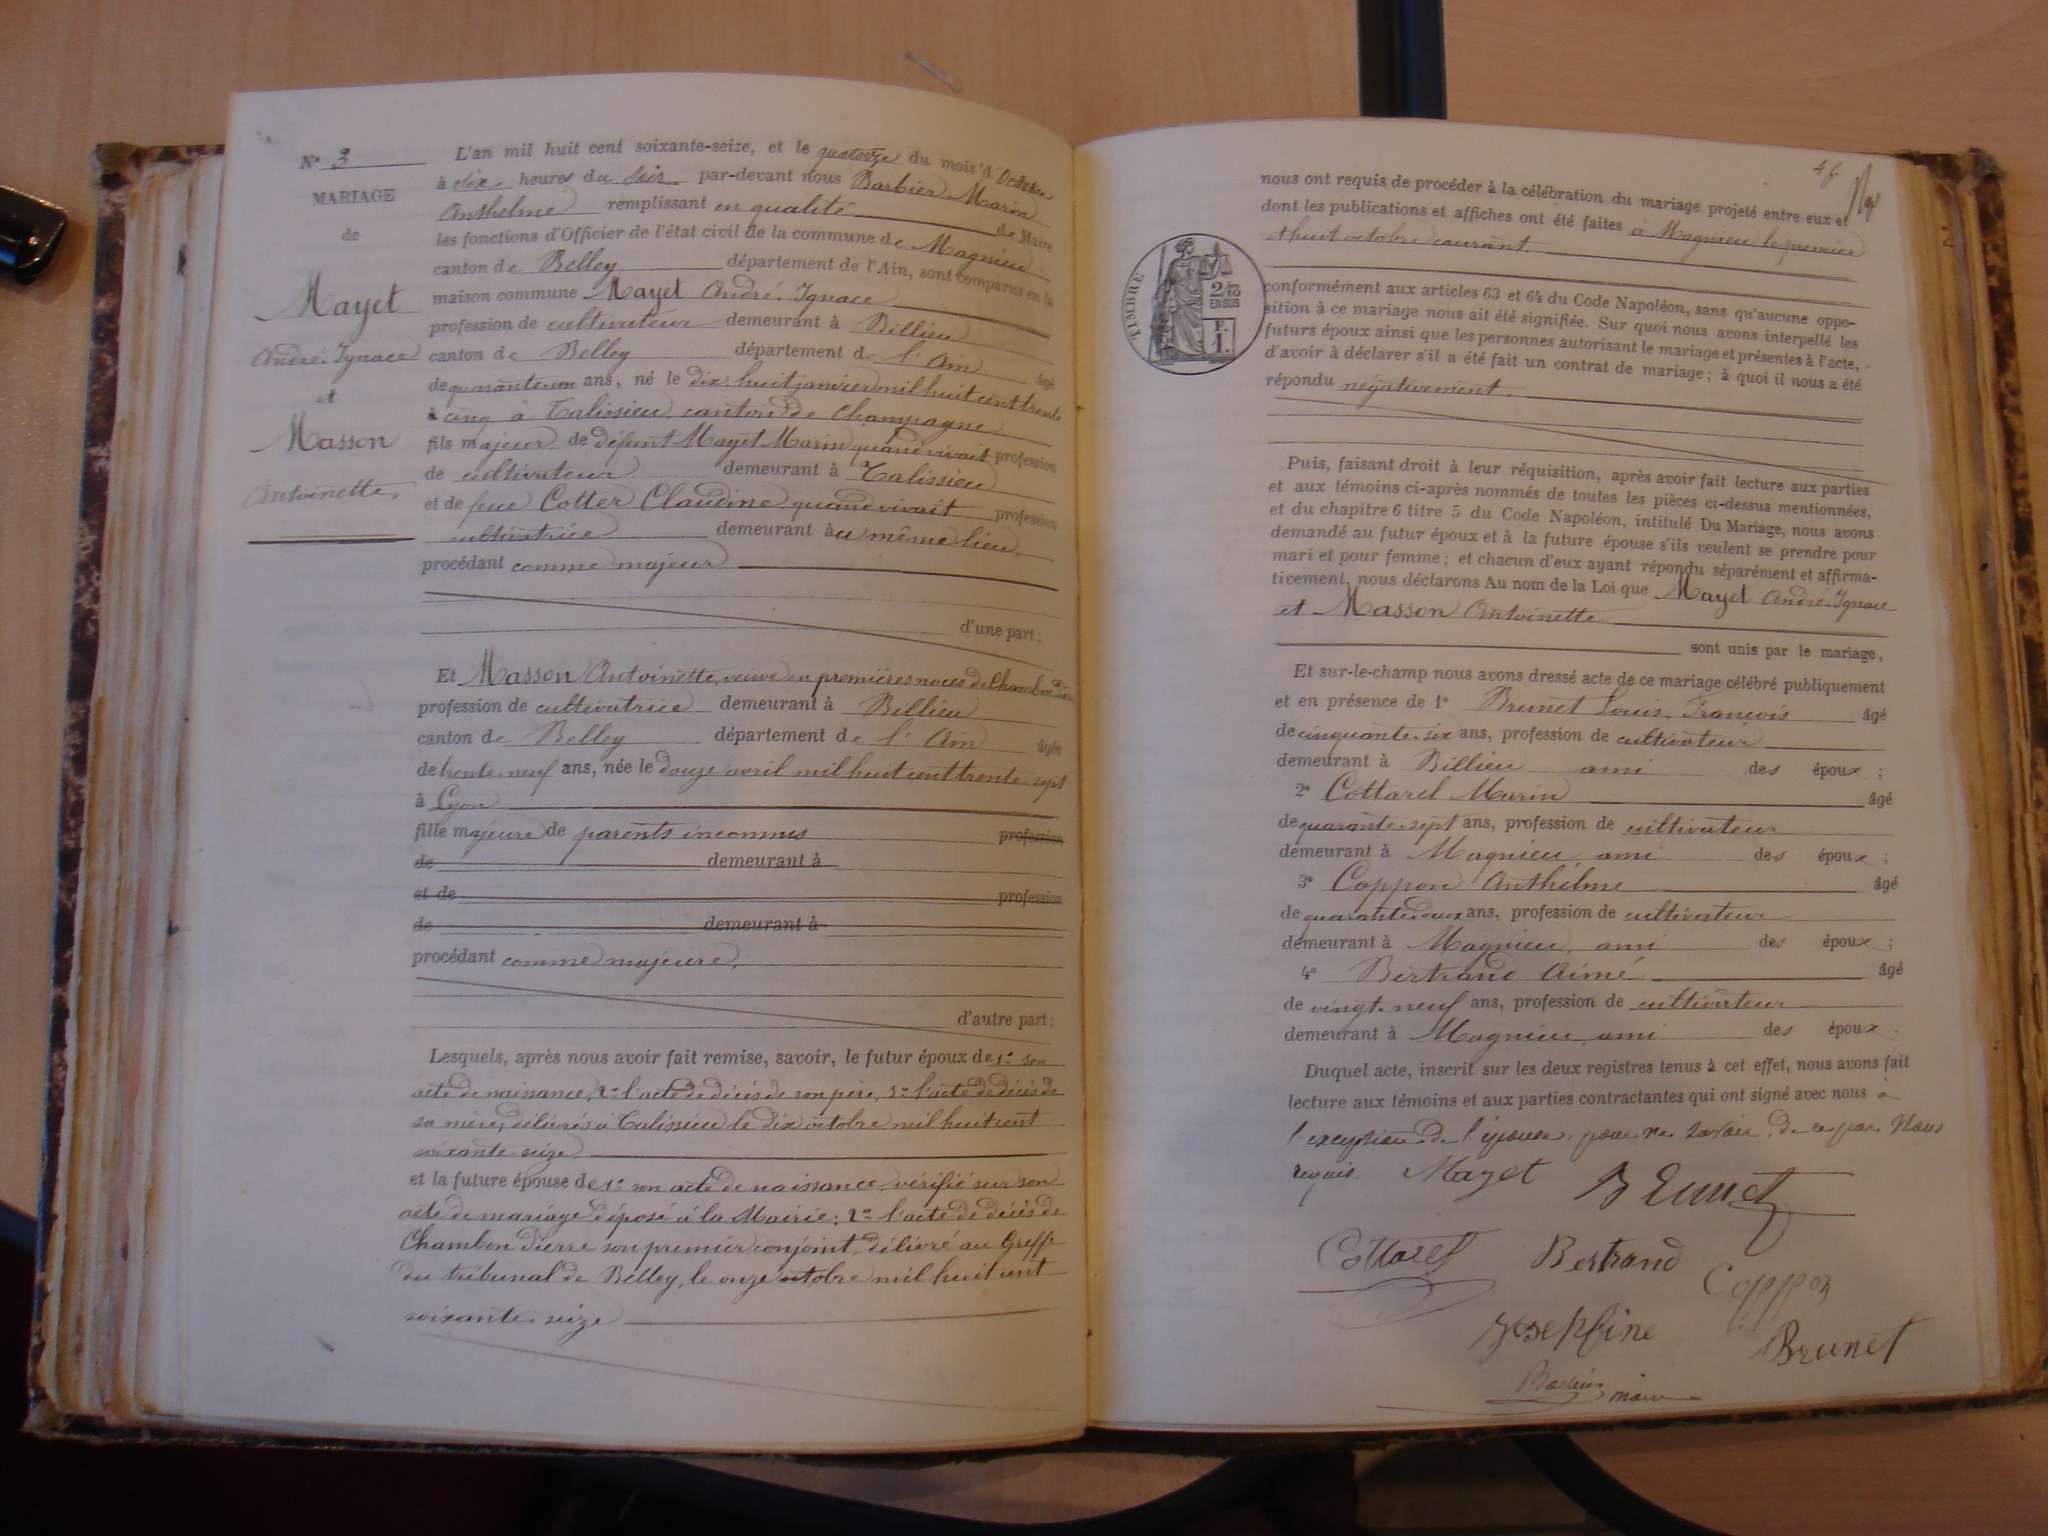 N° 3
MARIAGE
de
Mayet
André Ignace
et
Masson
Antoinette,
L'an mil huit cent soixante-seize, et le quatorze du mois d'Octobre
à six heures du soir par-devant nous Barbier Marin
Anthelme remplissant en qualité de Maire
les fonctions d'Officier de l'état civil de la commune de Magnieu
canton de Belley département de l'Ain, sont comparus en la
maison commune Mayet André Ignace
profession de cultivateur demeurant à Billieu
canton de Belley département de l'Ain âgé
de quarante un ans, né le dix huit janvier mil huit cent trente
cinq à Talissieu canton de Champagne
fils majeur de défunt Mayet Marin quand vivait profession
de cultivateur demeurant à Talissieu
et de feue Cotter Claudine quand vivait profession
cultivatrice demeurant au même lieu,
procédant comme majeur
d'une part;
Et Masson Antoinette, veuve en premières noces de Chambon
profession de cultivatrice demeurant à Billieu
canton de Belley département de l'Ain âgée
de trente-neuf ans, née le douze avril mil huit cent trente-sept
à Lyon
fille majeure de parents inconnus profession
de demeurant à
et de profession
de demeurant à
procédant comme majeure,
d'autre part;
Lesquels, après nous avoir fait remise, savoir, le futur époux de 1° son
acte de naissance, 2° l'acte de décès de son père, 3° l'acte de décès de
sa mère, délivrés à Talissieu le dix octobre mil huit cent
soixante-seize.
et la future épouse de 1° son acte de naissance, vérifié sur son
acte de mariage déposé à la Mairie; 2° l'acte de décès de
Chambon Pierre son premier conjoint, délivré au Greffe
du tribunal de Belley, le onze octobre mil huit cent
soixante-seize
nous ont requis de procéder à la célébration du mariage projeté entre eux et
dont les publications et affiches ont été faites à Magnieu le premier
et huit octobre courant.
TIMBRE
2/10
EN SUS
F.
1.
conformément aux articles 63 et 64 du Code Napoléon, sans qu'aucune oppo-
sition à ce mariage nous ait été signifiée. Sur quoi nous avons interpellé les
futurs époux ainsi que les personnes autorisant le mariage et présentes à l'acte,
d'avoir à déclarer s'il a été fait un contrat de mariage; à quoi il nous a été
répondu négativement.
Puis, faisant droit à leur réquisition, après avoir fait lecture aux parties
et aux témoins ci-après nommés de toutes les pièces ci-dessus mentionnées,
et du chapitre 6 titre 5 du Code Napoléon, intitulé Du Mariage, nous avons
demandé au futur époux et à la future épouse s'ils veulent se prendre pour
mari et pour femme; et chacun d'eux ayant répondu séparément et affirma-
tivement, nous déclarons Au nom de la Loi que Mayet André Ignace
et Masson Antoinette
sont unis par le mariage,
Et sur-le-champ nous avons dressé acte de ce mariage célébré publiquement
et en présence de 1° Brunet Louis François âgé
de cinquante-six ans, profession de cultivateur
demeurant à Billieu ami des époux;
2° Cottarel Marin âgé
de quarante-sept ans, profession de cultivateur
demeurant à Magnieu, ami des époux;
3° Coppon Anthelme âgé
de quarante deux ans, profession de cultivateur
demeurant à Magnieu, ami des époux;
4° Bertrand Aimé âgé
de vingt-neuf ans, profession de cultivateur
demeurant à Magnieu ami des époux.
Duquel acte, inscrit sur les deux registres tenus à cet effet, nous avons fait
lecture aux témoins et aux parties contractantes qui ont signé avec nous à
l'exception de l'épouse, pour ne savoir, de ce par Nous
requis. Mayet Brunet
Cottarel Bertrand Coppon
Josephine Brunet
Barbier maire